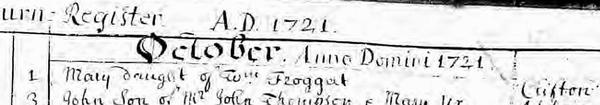 urn: Register A.D. 1721.
October. Anno Domini 1721
1 Mary daught of Wm Froggat
3 John Son of Mr John Thompson & Mary Ux Clifton